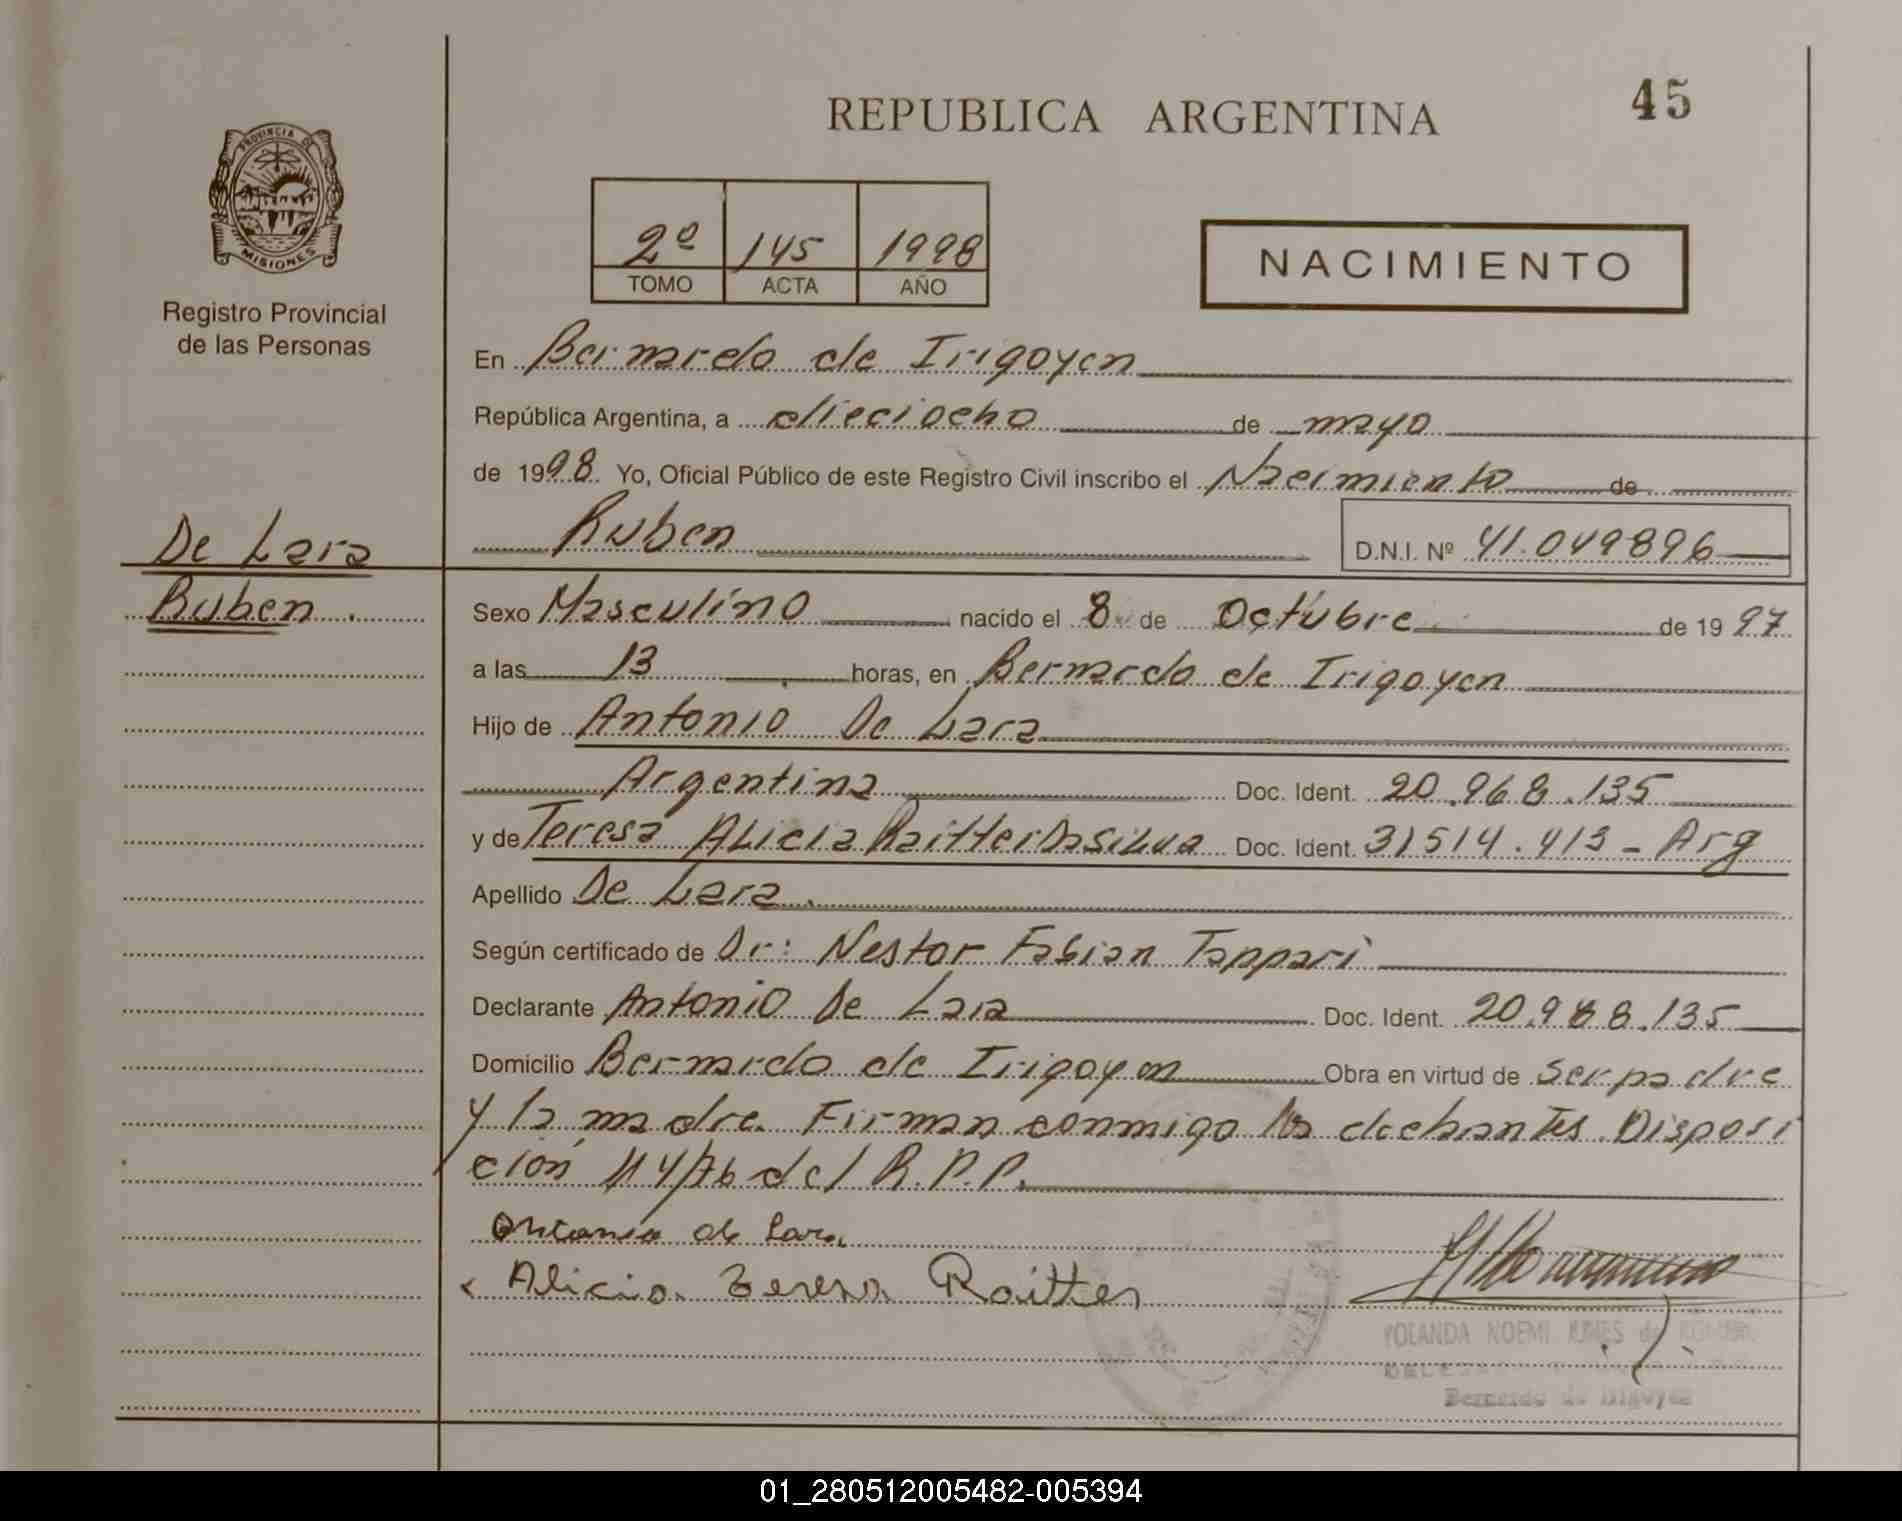 REPUBLICA ARGENTINA
45
PROVINCIA DE
MISIONES
Registro Provincial
de las Personas
2º 145 1998
TOMO ACTA AÑO
NACIMIENTO
En Bernardo de Irigoyen
República Argentina, a dieciocho de mayo
de 1998. Yo, Oficial Público de este Registro Civil inscribo el Nacimiento de
De Lara
Ruben
Ruben D.N.I. Nº 41.049896
Sexo Masculino nacido el 8 de Octubre de 1997
a las 13 horas, en Bernardo de Irigoyen
Hijo de Antonio De Lara
Argentina Doc. Ident. 20.968.135
y de Teresa Alicia Raitter Dasilva Doc. Ident. 31514.413 - Arg
Apellido De Lara.
Según certificado de Dr: Nestor Fabian Tappari
Declarante Antonio De Lara Doc. Ident. 20.988.135
Domicilio Bernardo de Irigoyen Obra en virtud de ser padre
y la madre. Firman conmigo los declarantes Disposi
ción 114/76 del R.P.P.
Antonio de Lara
Alicia Teresa Raitter
YOLANDA NOEMI de
Bernardo de Irigoyen
01_280512005482-005394